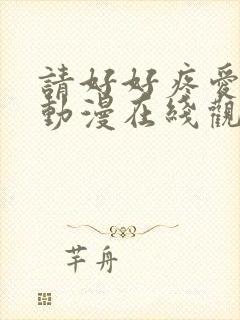 請好好疼愛
動漫在綫觀
芊舟